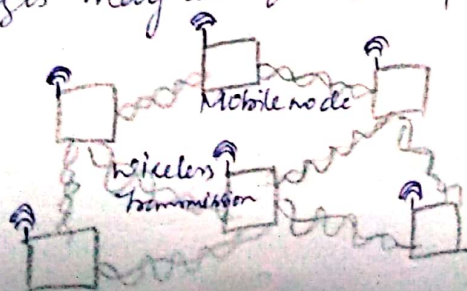 may
Mobile node
wireless
Transmission